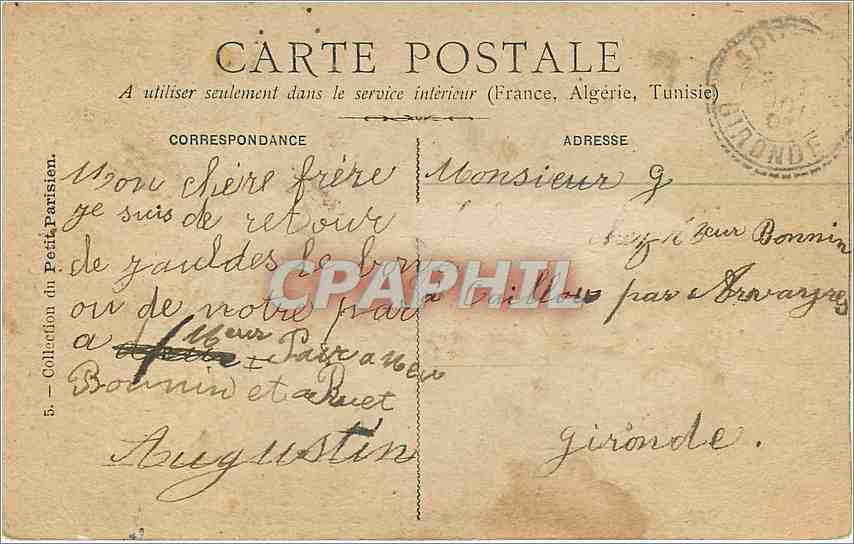 CARTE POSTALE
A utiliser seulement dans le service intérieur (France, Algérie, Tunisie)
CORRESPONDANCE
Mon chère frère
je suis de retour
de le bon
ou de notre part
a Meur
Bounin et a Ruet
Augustin
ADRESSE
Monsieur g
chez Bonnin
a Caillou par Arvayres
Gironde.
5. — Collection du Petit Parisien.
GIRONDE
CPAPHIL